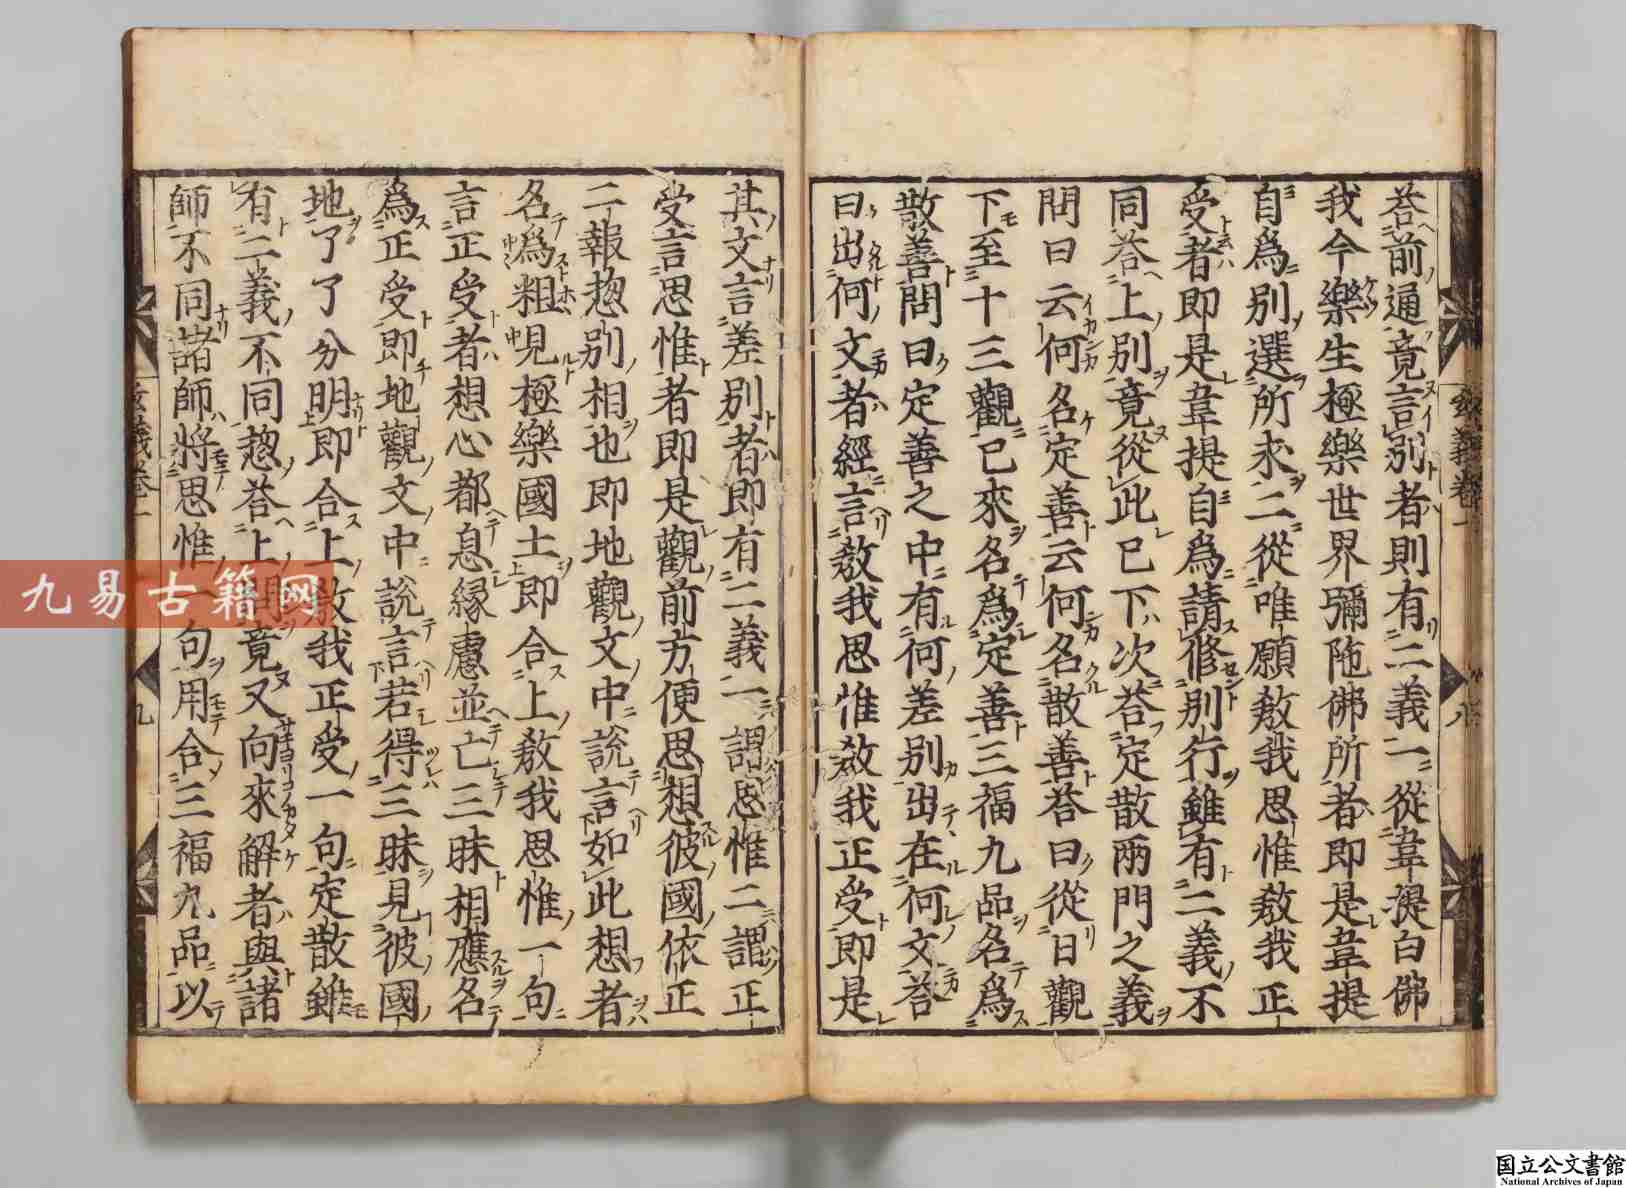 荅前通竟言別者則有二義一從韋提白佛
我今樂生極樂世界彌陁佛所者即是韋提
自爲別選所求二從唯願敎我思惟敎我正
受者即是韋提自爲請修別行雖有二義不
同荅上別竟從此已下次荅定散兩門之義
問曰云何名定善云何名散善荅曰從日觀
下至十三觀已來名爲定善三福九品名爲
散善問曰定善之中有何差別出在何文荅
曰出何文者經言敎我思惟敎我正受即是
其文言差別者即有二義一謂思惟二謂正
受言思惟者即是觀前方便思想彼國依正
二報揔別相也即地觀文中說言如此想者
名爲粗見極樂國土即合上敎我思惟一句
言正受者想心都息緣慮並亡三昧相應名
爲正受即地觀文中說言若得三昧見彼國
地了了分明即合上敎我正受一句定散雖
有二義不同揔荅上問竟又向來解者與諸
師不同諸師將思惟一句用合三福九品以
玄義卷一
九
九易古籍网
国立公文書館
National Archives of Japan